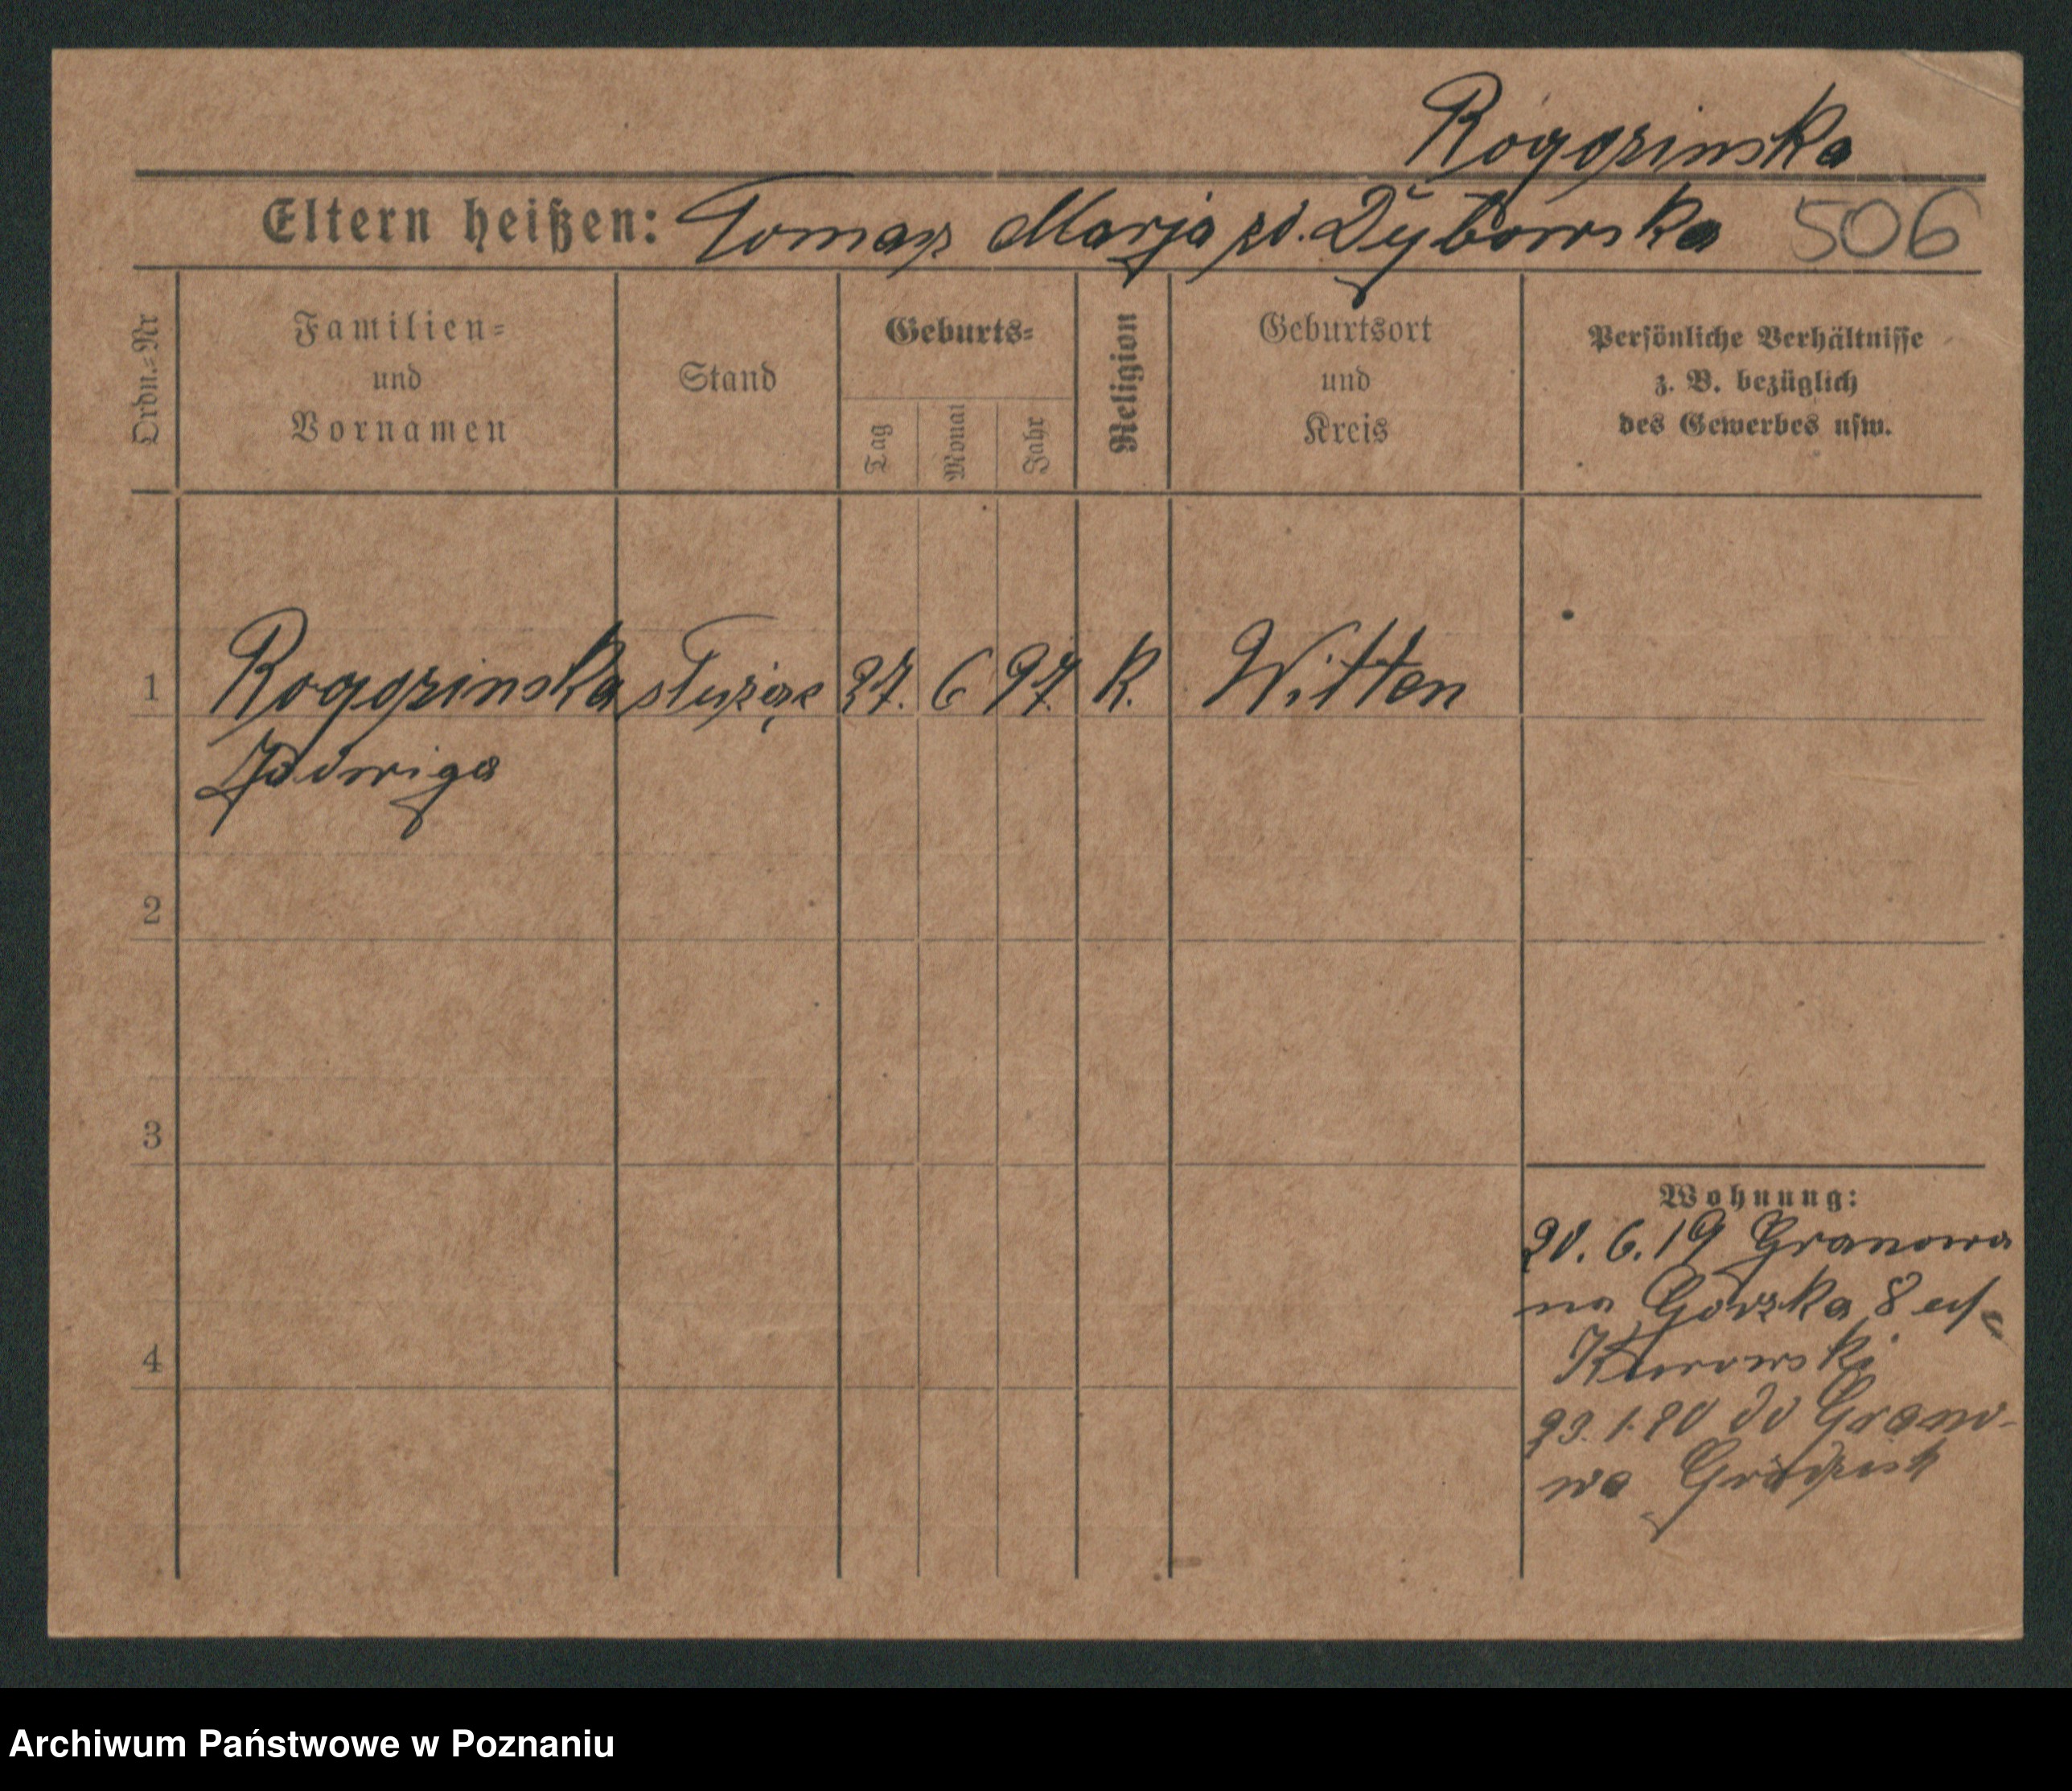 Rogozinska
Eltern heißen: Tomasz Marja zd. Dybowska 506
Ordn.=Nr
Familien=
und
Vornamen
Stand
Geburts=
Tag
Monat
Jahr
Religion
Geburtsort
und
Kreis
Persönliche Verhältnisse
z. B. bezüglich
des Gewerbes usw.
1 Rogozinska służąc 27. 6 97. K. Witten
Jadwiga
2
3
4
Wohnung:
20. 6. 19 Granowa
na Górska 8
Kurowski
23. 1. 20 do Grano-
wa Grodzisk
Archiwum Państwowe w Poznaniu